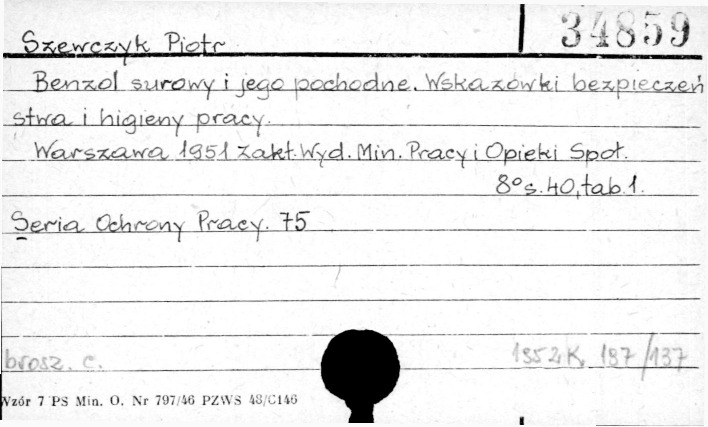 Szewczyk Piotr 34859
Benzol surowy i jego pochodne. Wskazówki bezpieczeń
stwa i higieny pracy.
Warszawa 1951 Zakł. Wyd. Min. Pracy i Opieki Społ.
8° s. 40, tab. 1.
Seria Ochrony Pracy. 75
brosz. c. 1952 K. 197/137
Wzór 7 PS Min. O. Nr 797/46 PZWS 48/C146